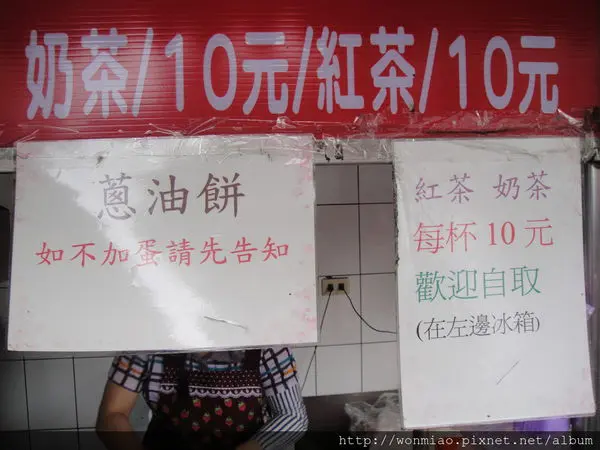 奶茶/10元/紅茶/10元
蔥油餅
如不加蛋請先告知
紅茶 奶茶
每杯10元
歡迎自取
(在左邊冰箱)
http://wonmiao.pixnet.net/album